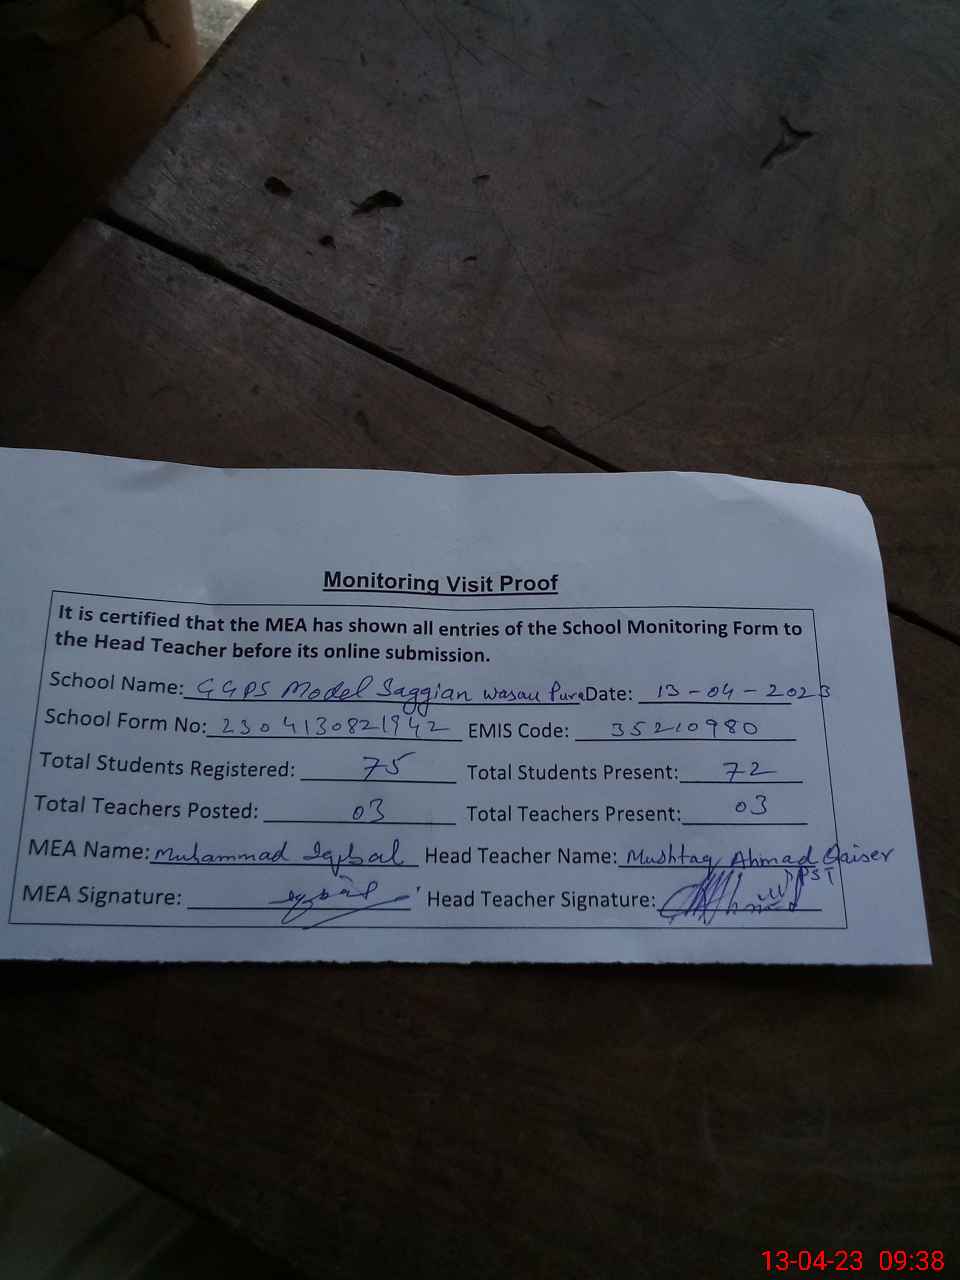 Monitoring Visit Proof
It is certified that the MEA has shown all entries of the School Monitoring Form to
the Head Teacher before its online submission.
School Name: GGPS Model Saggian Wasau Pura Date: 13-04-2023
School Form No: 2304130821942 EMIS Code: 35210980
Total Students Registered: 75 Total Students Present: 72
Total Teachers Posted: 03 Total Teachers Present: 03
MEA Name: Muhammad Iqbal Head Teacher Name: Mushtaq Ahmad Qaiser
PST
MEA Signature: Head Teacher Signature:
13-04-23 09:38